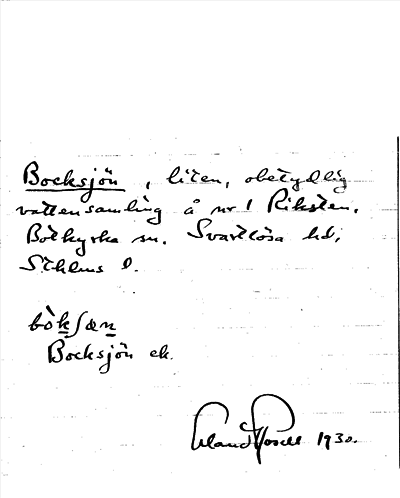 Bocksjön, liten, obetydlig
vattensamling å nr 1 Riksten,
Botkyrka sn. Svartlösa hd,
Sthlms l.
bòkʃœn
Bocksjön ek.
1930.